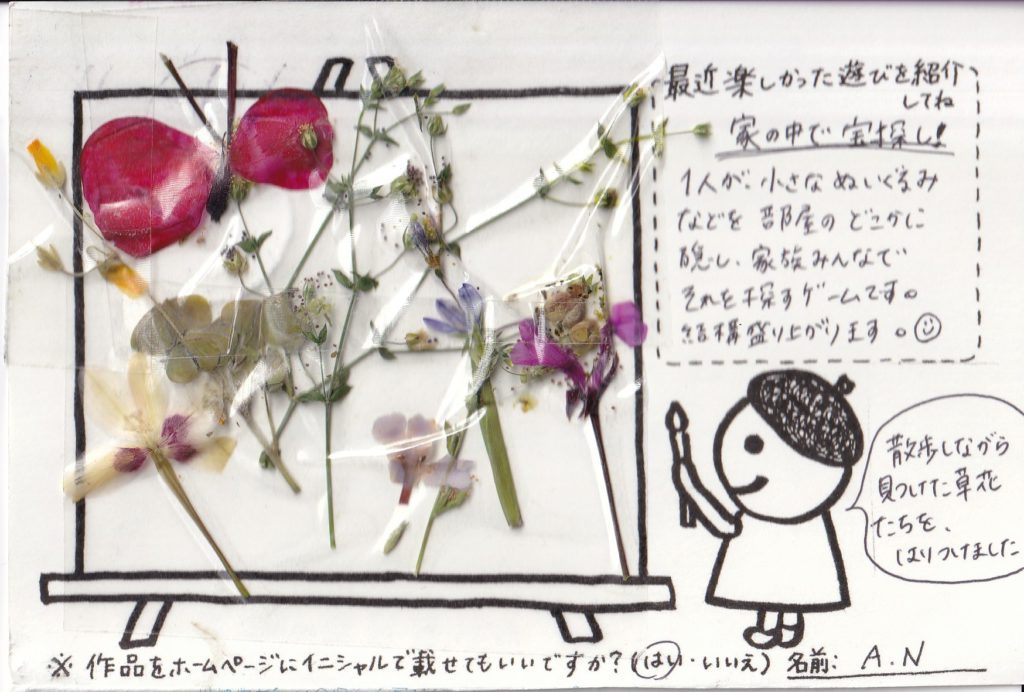 最近楽しかった遊びを紹介
してね
家の中で宝探し!
1人が、小さなぬいぐるみ
などを部屋のどこかに
隠し、家族みんなで
それを探すゲームです。
結構盛り上がります。
散歩しながら
見つけた草花
たちを、
はりつけました
※ 作品をホームページにイニシャルで載せてもいいですか?(はい・いいえ) 名前: A.N